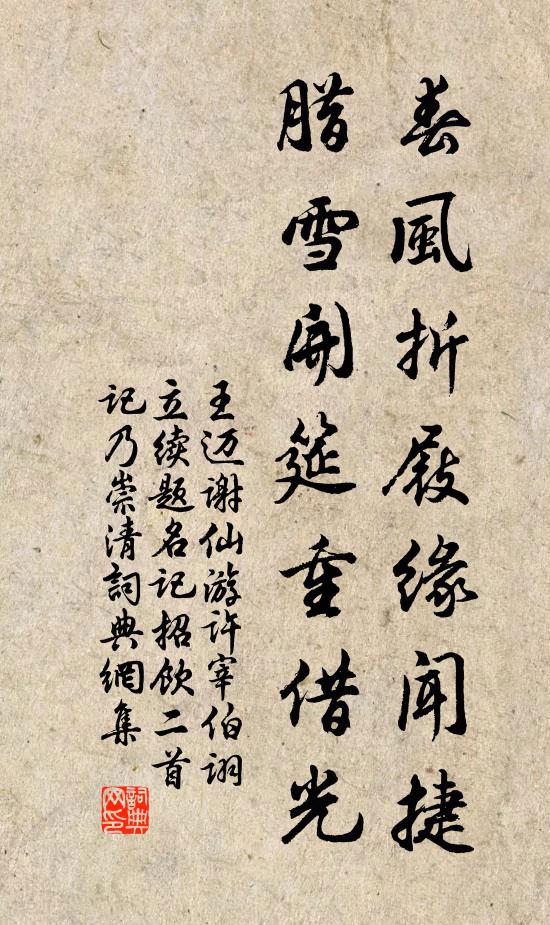 春風折屐缘闻捷
腊雪開筵重借光
王迈谢仙游许宰伯詡
立续题名记招饮二首
记乃崇清詞典網集
詞典网印